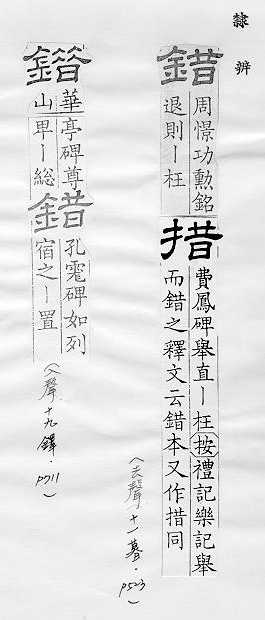 隸辨
錯
周憬功勳銘
退則丨枉
措
費鳳碑舉直丨枉按禮記樂記舉
而錯之釋文云錯本又作措同
(去聲十一暮.p523)
錯
華亭碑尊
山卑丨総
錯
孔碑如列
宿之丨置
(入聲十九鐸.p711)